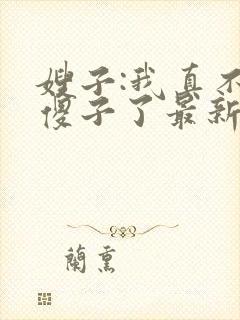 嫂子:我真不
傻子了最新
蘭熏